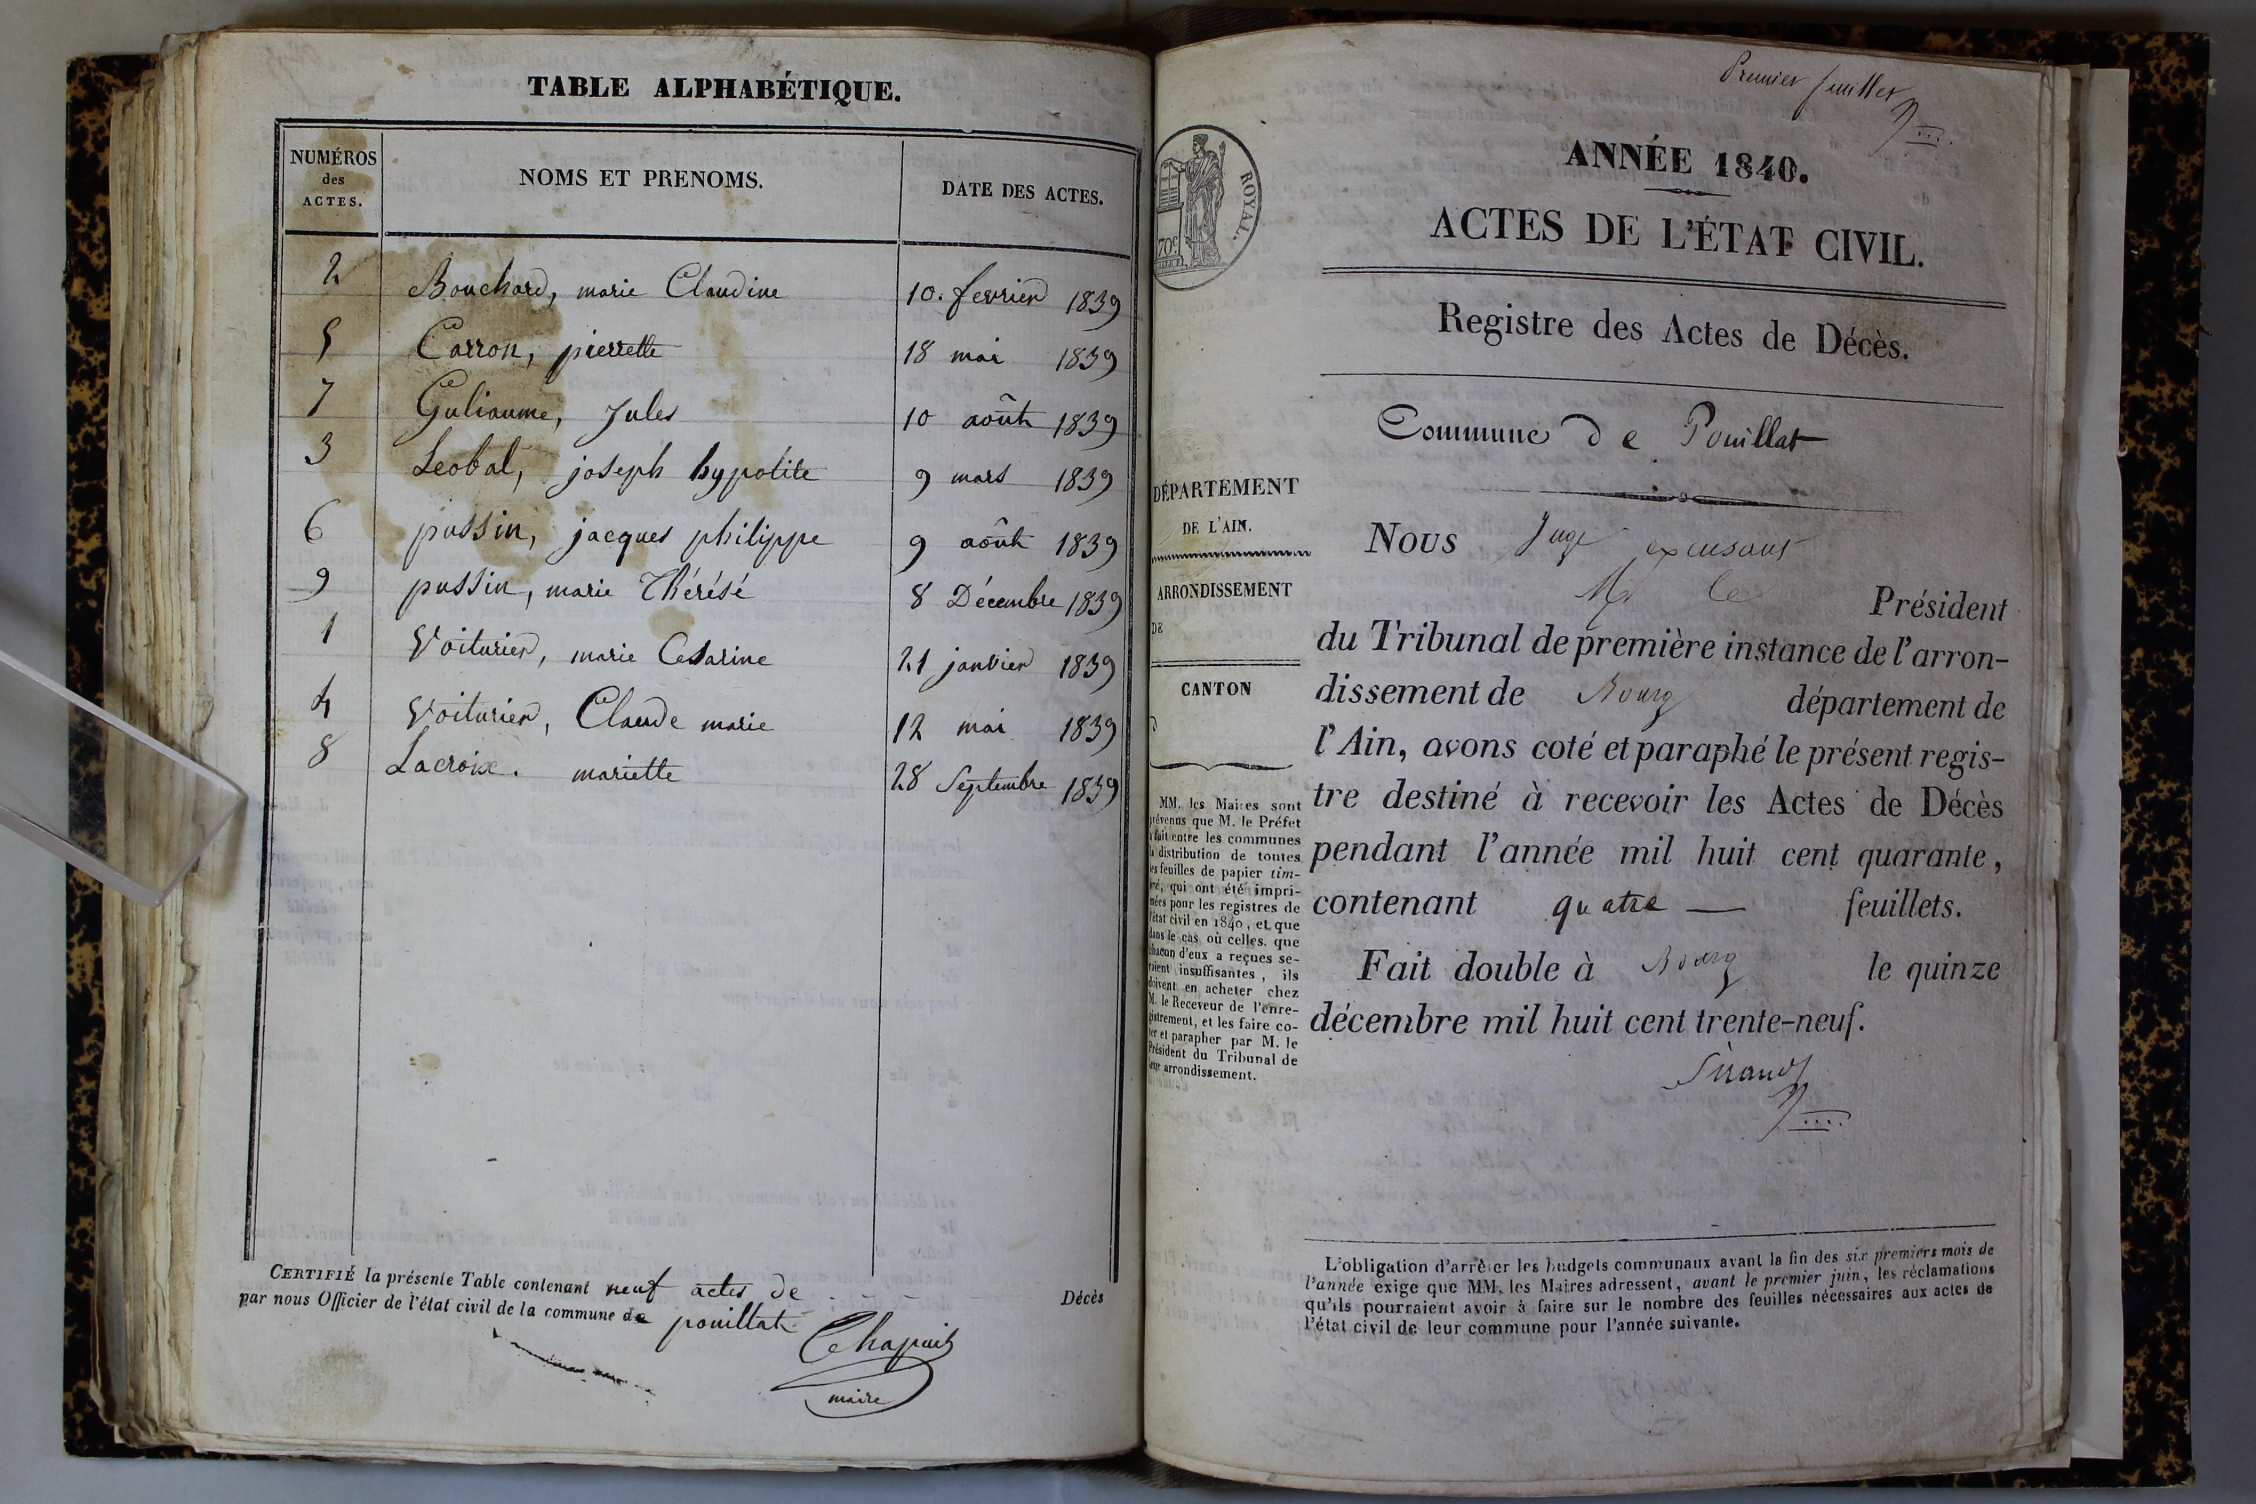 TABLE ALPHABÉTIQUE.
NUMÉROS des ACTES. NOMS ET PRENOMS. DATE DES ACTES.
2 Bouchard, marie Claudine 10. fevrier 1839
5 Carron, pierrette 18 mai 1839
7 Guliaume, Jules 10 août 1839
3 Leobal, joseph hypolite 9 mars 1839
6 pussin, jacques philippe 9 août 1839
9 pussin, marie Thérésé 8 Décembre 1839
1 Voiturier, marie Cesarine 21 janvier 1839
4 Voiturier, Claude marie 12 mai 1839
8 Lacroix. mariette 28 Septembre 1839
CERTIFIÉ la présente Table contenant neuf actes de Décès
par nous Officier de l'état civil de la commune de pouillat
Chapuis
maire
Premier feuillet
ROYAL.
70c
ANNÉE 1840.
ACTES DE L'ÉTAT CIVIL.
Registre des Actes de Décès.
Commune de Pouillat
DÉPARTEMENT
DE L'AIN.
ARRONDISSEMENT
DE
CANTON
D
MM. les Maires sont
prévenus que M. le Préfet
a fait entre les communes
la distribution de toutes
les feuilles de papier tim-
bré, qui ont été impri-
mées pour les registres de
l'état civil en 1840, et que
dans le cas où celles que
chacun d'eux a reçues se-
raient insuffisantes, ils
doivent en acheter chez
M. le Receveur de l'enre-
gistrement, et les faire co-
ter et parapher par M. le
Président du Tribunal de
leur arrondissement.
Nous Juge excusant
Mr le Président
du Tribunal de première instance de l'arron-
dissement de Bourg département de
l'Ain, avons coté et paraphé le présent regis-
tre destiné à recevoir les Actes de Décès
pendant l'année mil huit cent quarante,
contenant quatre feuillets.
Fait double à Bourg le quinze
décembre mil huit cent trente-neuf.
Sirand
L'obligation d'arrêter les budgets communaux avant la fin des six premiers mois de
l'année exige que MM. les Maires adressent, avant le premier juin, les réclamations
qu'ils pourraient avoir à faire sur le nombre des feuilles nécessaires aux actes de
l'état civil de leur commune pour l'année suivante.